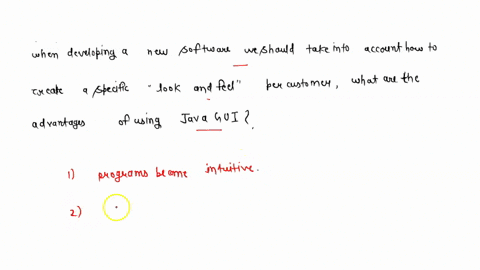 when developing a new software we should take into account how to
create a specific "look and feel" per customer, what are the
advantages of using Java GUI?
1) programs become intuitive.
2)